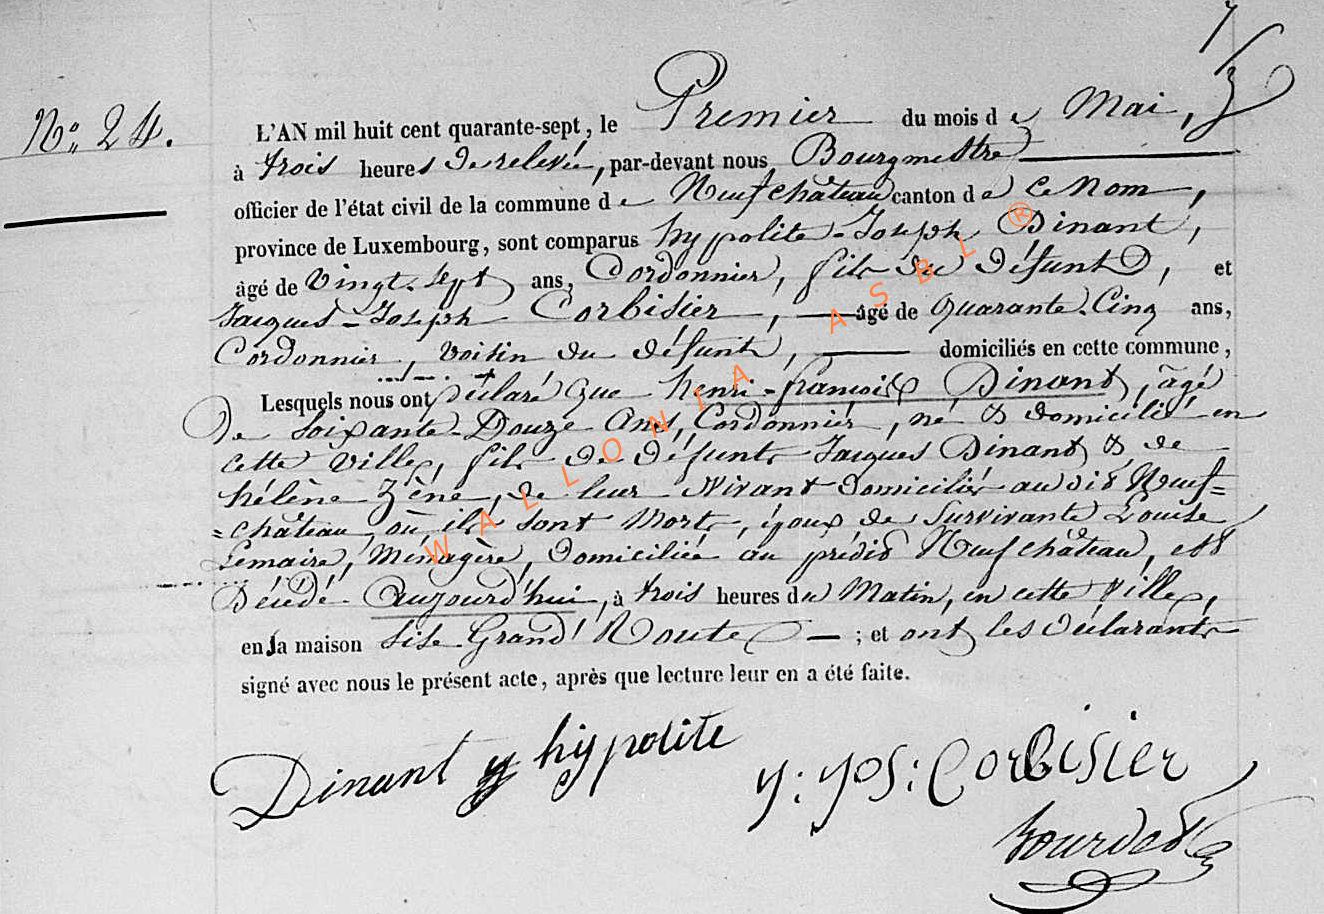 N° 24.
L'AN mil huit cent quarante-sept, le Premier du mois de Mai,
à trois heures de relevée, par-devant nous Bourgmestre
officier de l'état civil de la commune de Neufchâteau canton de ce nom,
province de Luxembourg, sont comparus hypolite-Joseph Dinant,
âgé de vingt-sept ans, Cordonnier, fils du défunt, et
Jacques-Joseph Corbisier, âgé de quarante-Cinq ans,
Cordonnier, voisin du défunt, domiciliés en cette commune,
Lesquels nous ont déclaré que henri-françois Dinant, âgé
de soixante-Douze Ans, Cordonnier, né & domicilié en
cette ville, fils de défunts Jacques Dinant & de
hélène Zéné, de leur vivant domiciliés au dit Neuf=
=château, où ils sont morts, époux de survivante Louise
Lemaire, Ménagère, domiciliée au prédit Neufchâteau, est
Décédé aujourd'hui, à trois heures du Matin, en cette Ville,
en la maison sise Grand'Route ; et ont les déclarants
signé avec nous le présent acte, après que lecture leur en a été faite.
Dinant hypolite
j: jos: Corbisier
WALLONIA ASBL ®